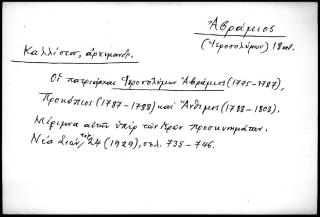 Ἀβράμιος
(Ἱεροσολύμων) 18 αἰ.
Καλλίστου, ἀρχιμανδρ.
Οἱ πατριάρχαι Ἱεροσολύμων Ἀβράμιος (1775-1787),
Προκόπιος (1787-1788) καὶ Ἄνθιμος (1788-1808).
Μέριμνα αὐτῶν ὑπὲρ τῶν ἱερῶν προσκυνημάτων.
Νέα Σιών, τόμ. 24 (1929), σελ. 735-746.